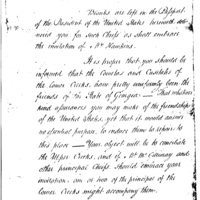 Blanks are left in the Passport
of the President of the United States herewith de-
livered you for such Chiefs as shall embrace
the invitation of Mr Hawkins.
It is proper that you should be
informed that the Cowetas and Cussetahs of
the lower Creeks, have pretty uniformly been the
friends of the State of Georgia — That whatever
assurances you may make of the friendship
of the United States, yet that it would answer
no essential purpose, to induce them to repair to
this place — Your object will be to conciliate
the Upper Creeks, and if Mr McGillivray and
other principal Chiefs should embrace your
invitation one or two of the principal of the
lower Creeks might accompany them.